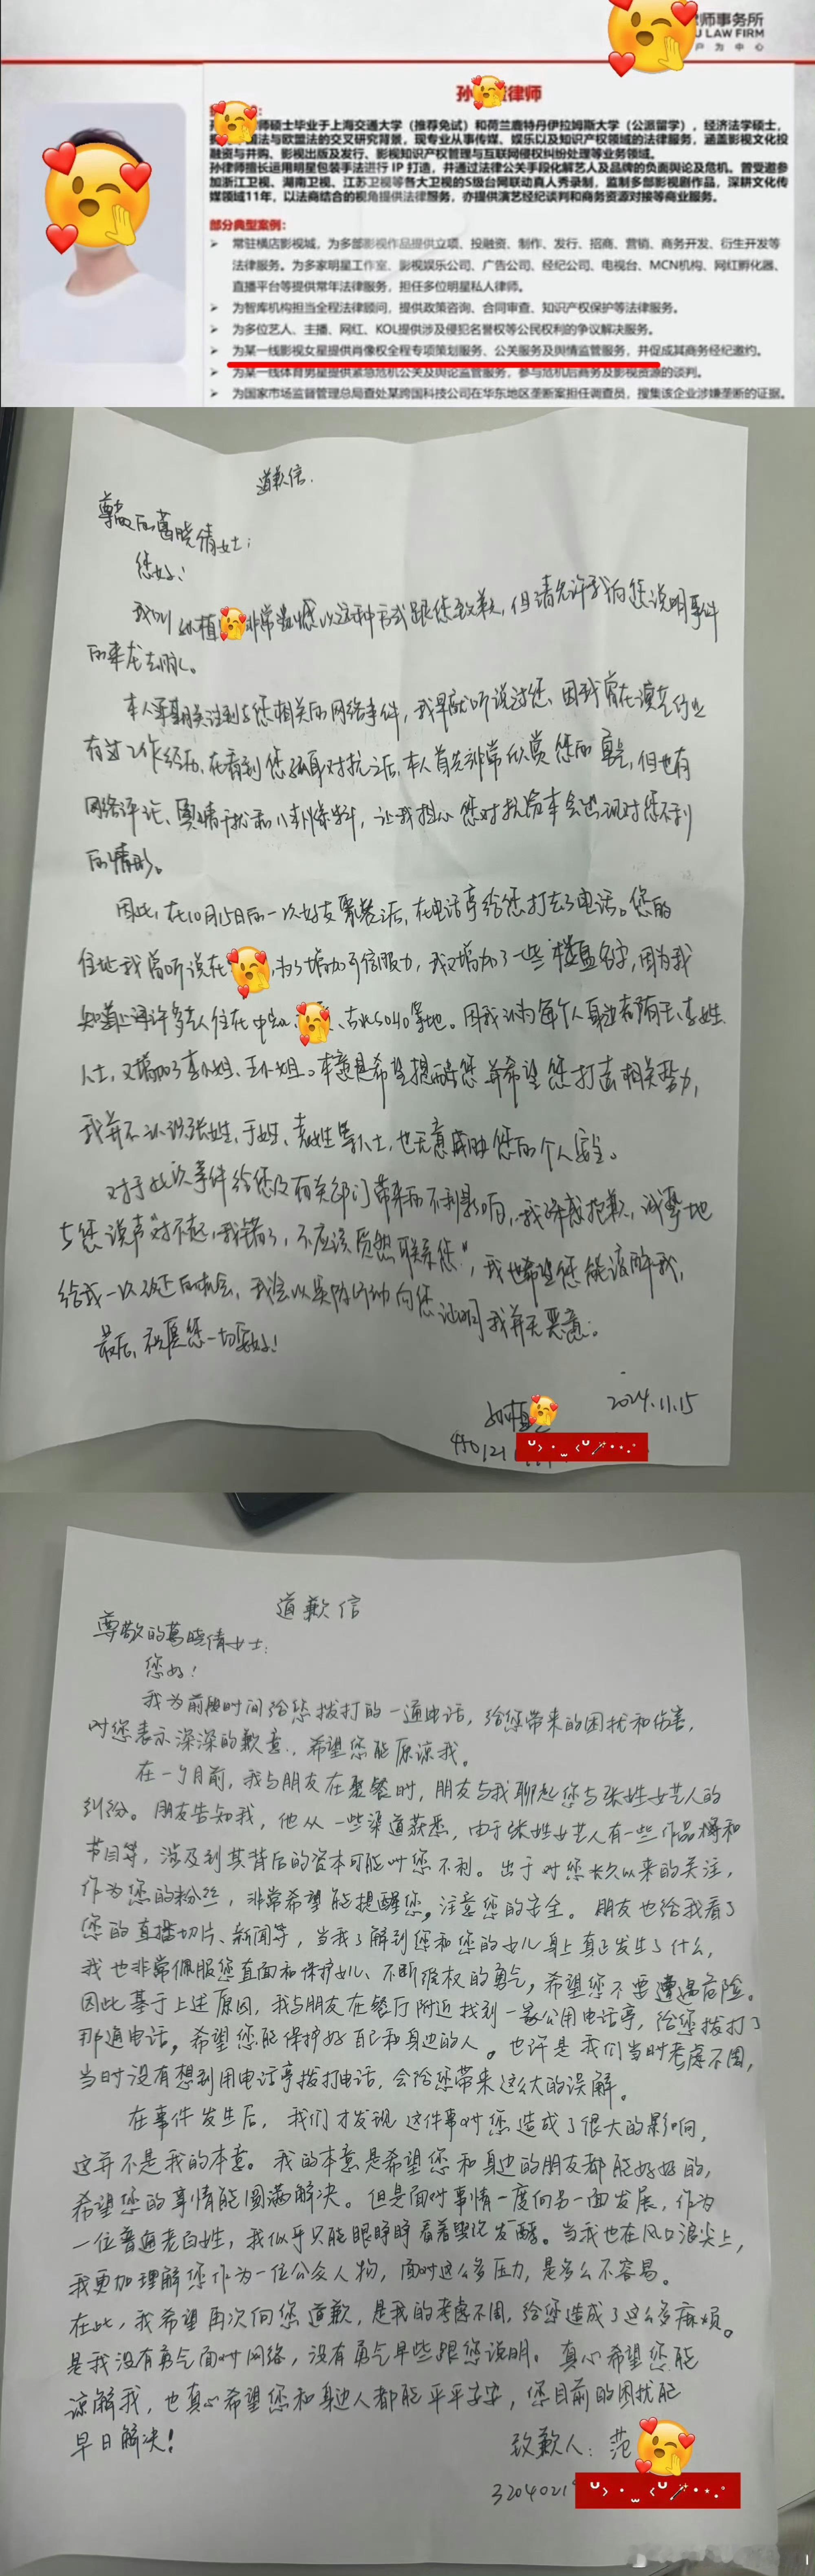 师事务所
LAW FIRM
户 为 中 心
孙 律师
师硕士毕业于上海交通大学（推荐免试）和荷兰鹿特丹伊拉姆斯大学（公派留学），经济法学硕士，
法与欧盟法的交叉研究背景，现专业从事传媒、娱乐以及知识产权领域的法律服务，涵盖影视文化投
融资与并购、影视出版及发行、影视知识产权管理与互联网侵权纠纷处理等业务领域。
孙律师擅长运用明星包装手法进行 IP 打造，并通过法律公关手段化解艺人及品牌的负面舆论及危机。曾受邀参
加浙江卫视、湖南卫视、江苏卫视等各大卫视的S级台网联动真人秀录制，监制多部影视剧作品，深耕文化传
媒领域11年，以法商结合的视角提供法律服务，亦提供演艺经纪谈判和商务资源对接等商业服务。
部分典型案例：
常驻横店影视城，为多部影视作品提供立项、投融资、制作、发行、招商、营销、商务开发、衍生开发等
法律服务。为多家明星工作室、影视娱乐公司、广告公司、经纪公司、电视台、MCN机构、网红孵化器、
直播平台等提供常年法律服务，担任多位明星私人律师。
为智库机构担当全程法律顾问，提供政策咨询、合同审查、知识产权保护等法律服务。
为多位艺人、主播、网红、KOL提供涉及侵犯名誉权等公民权利的争议解决服务。
为某一线影视女星提供肖像权全程专项策划服务、公关服务及舆情监管服务，并促成其商务经纪邀约。
为某一线体育男星提供紧急危机公关及舆论监管服务，参与危机后商务及影视资源的谈判。
为国家市场监督管理总局查处某跨国科技公司在华东地区垄断案担任调查员，搜集该企业涉嫌垄断的证据。
道歉信.
尊敬的葛晓倩女士：
您好！
我叫孙植 非常遗憾以这种方式跟您致歉，但请允许我向您说明事件
的来龙去脉。
本人早期关注到与您相关的网络事件，我早就听说过您、因我曾在演艺行业
有过工作经历、在看到您孤身对抗之后，本人首先非常欣赏您的勇气，但也有
网络评论、舆情干扰和八卦爆料，让我担心您对抗资本会出现对您不利
的情形。
因此，在10月15日的一次好友聚餐之后，在电话亭给您打去了电话。您的
住址我曾听说在 ，为了增加可信服力，我又增加了一些楼盘名字，因为我
知道上海许多艺人住在中 、 、古北SOHO等地。因我认为每个人身边都有王、李姓
人士，又增加了李小姐、王小姐。本意是希望提醒您并希望您打击相关势力，
我并不认识张姓、于姓、袁姓等人士，也无意威胁您的个人安全。
对于此次事件给您及有关部门带来的不利影响，我深感抱歉，诚挚地
与您说声“对不起，我错了，不应该贸然联系您”，我也希望您能谅解我，
给我一次改正的机会，我会以实际行动向您证明我并无恶意。
最后，祝愿您一切安好！
孙植
2024.11.15
道歉信
尊敬的葛晓倩女士：
您好！
我为前段时间给您拨打的一通电话，给您带来的困扰和伤害，
对您表示深深的歉意，希望您能原谅我。
在一个月前，我与朋友在聚餐时，朋友与我聊起您与张姓女艺人的
纠纷。朋友告知我，他从一些渠道获悉，由于张姓女艺人有一些作品和
节目等，涉及到其背后的资本可能对您不利。出于对您长久以来的关注，
作为您的粉丝，非常希望能提醒您，注意您的安全。朋友也给我看了
您的直播切片、新闻等，当我了解到您和您的女儿身上真正发生了什么，
我也非常佩服您直面和保护女儿、不断维权的勇气，希望您不要遭遇危险。
因此基于上述原因，我与朋友在餐厅附近找到一家公用电话亭，给您拨打了
那通电话，希望您能保护好自己和身边的人。也许是我们当时考虑不周，
当时没有想到用电话亭拨打电话，会给您带来这么大的误解。
在事件发生后，我们才发现这件事对您造成了很大的影响，
这并不是我的本意。我的本意是希望您和身边的朋友都能好好的，
希望您的事情能圆满解决。但是面对事情一度向另一面发展，作为
一位普通老百姓，我似乎只能眼睁睁看着舆论发酵。当我也在风口浪尖上，
我更加理解您作为一位公众人物，面对这么多压力，是多么不容易。
在此，我希望再次向您道歉，是我的考虑不周，给您造成了这么多麻烦。
是我没有勇气面对网络，没有勇气早些跟您说明。真心希望您能
谅解我，也真心希望您和身边人都能平平安安，您目前的困扰能
早日解决！
致歉人：范
3204021